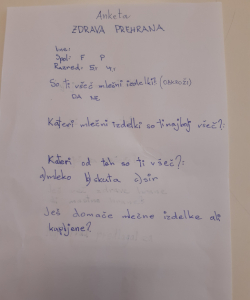 Anketa:
ZDRAVA PREHRANA
Ime:
Spol: F P
Razred: 5. 4.
So ti všeč mlečni izdelki? (OBKROŽI)
DA NE
Kateri mlečni izdelki so ti najbolj všeč?:
Kateri od teh so ti všeč?:
a)mleko b)skuta c)sir
Ješ domače mlečne izdelke ali
kupljene?